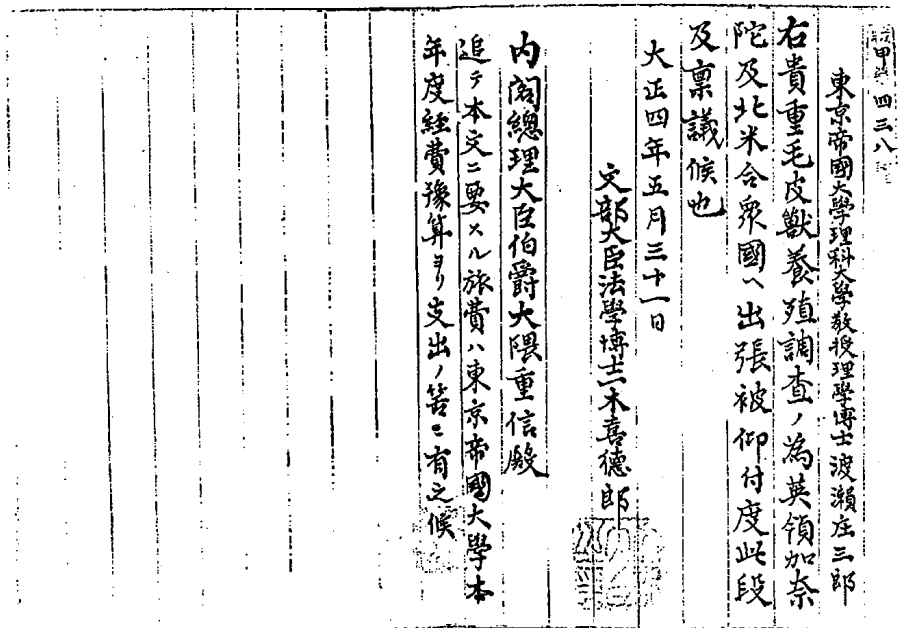 甲 四三八
東京帝國大學理科大學敎授理學博士渡瀨庄三郎
右貴重毛皮獸養殖調査ノ爲英領加奈
陀及北米合衆國ヘ出張被仰付度此段
及稟議候也
大正四年五月三十一日
文部大臣法學博士一木喜德郎
内閣總理大臣伯爵大隈重信殿
追テ本文ニ要スル旅費ハ東京帝國大學本
年度經費豫算ヨリ支出ノ筈ニ有之候